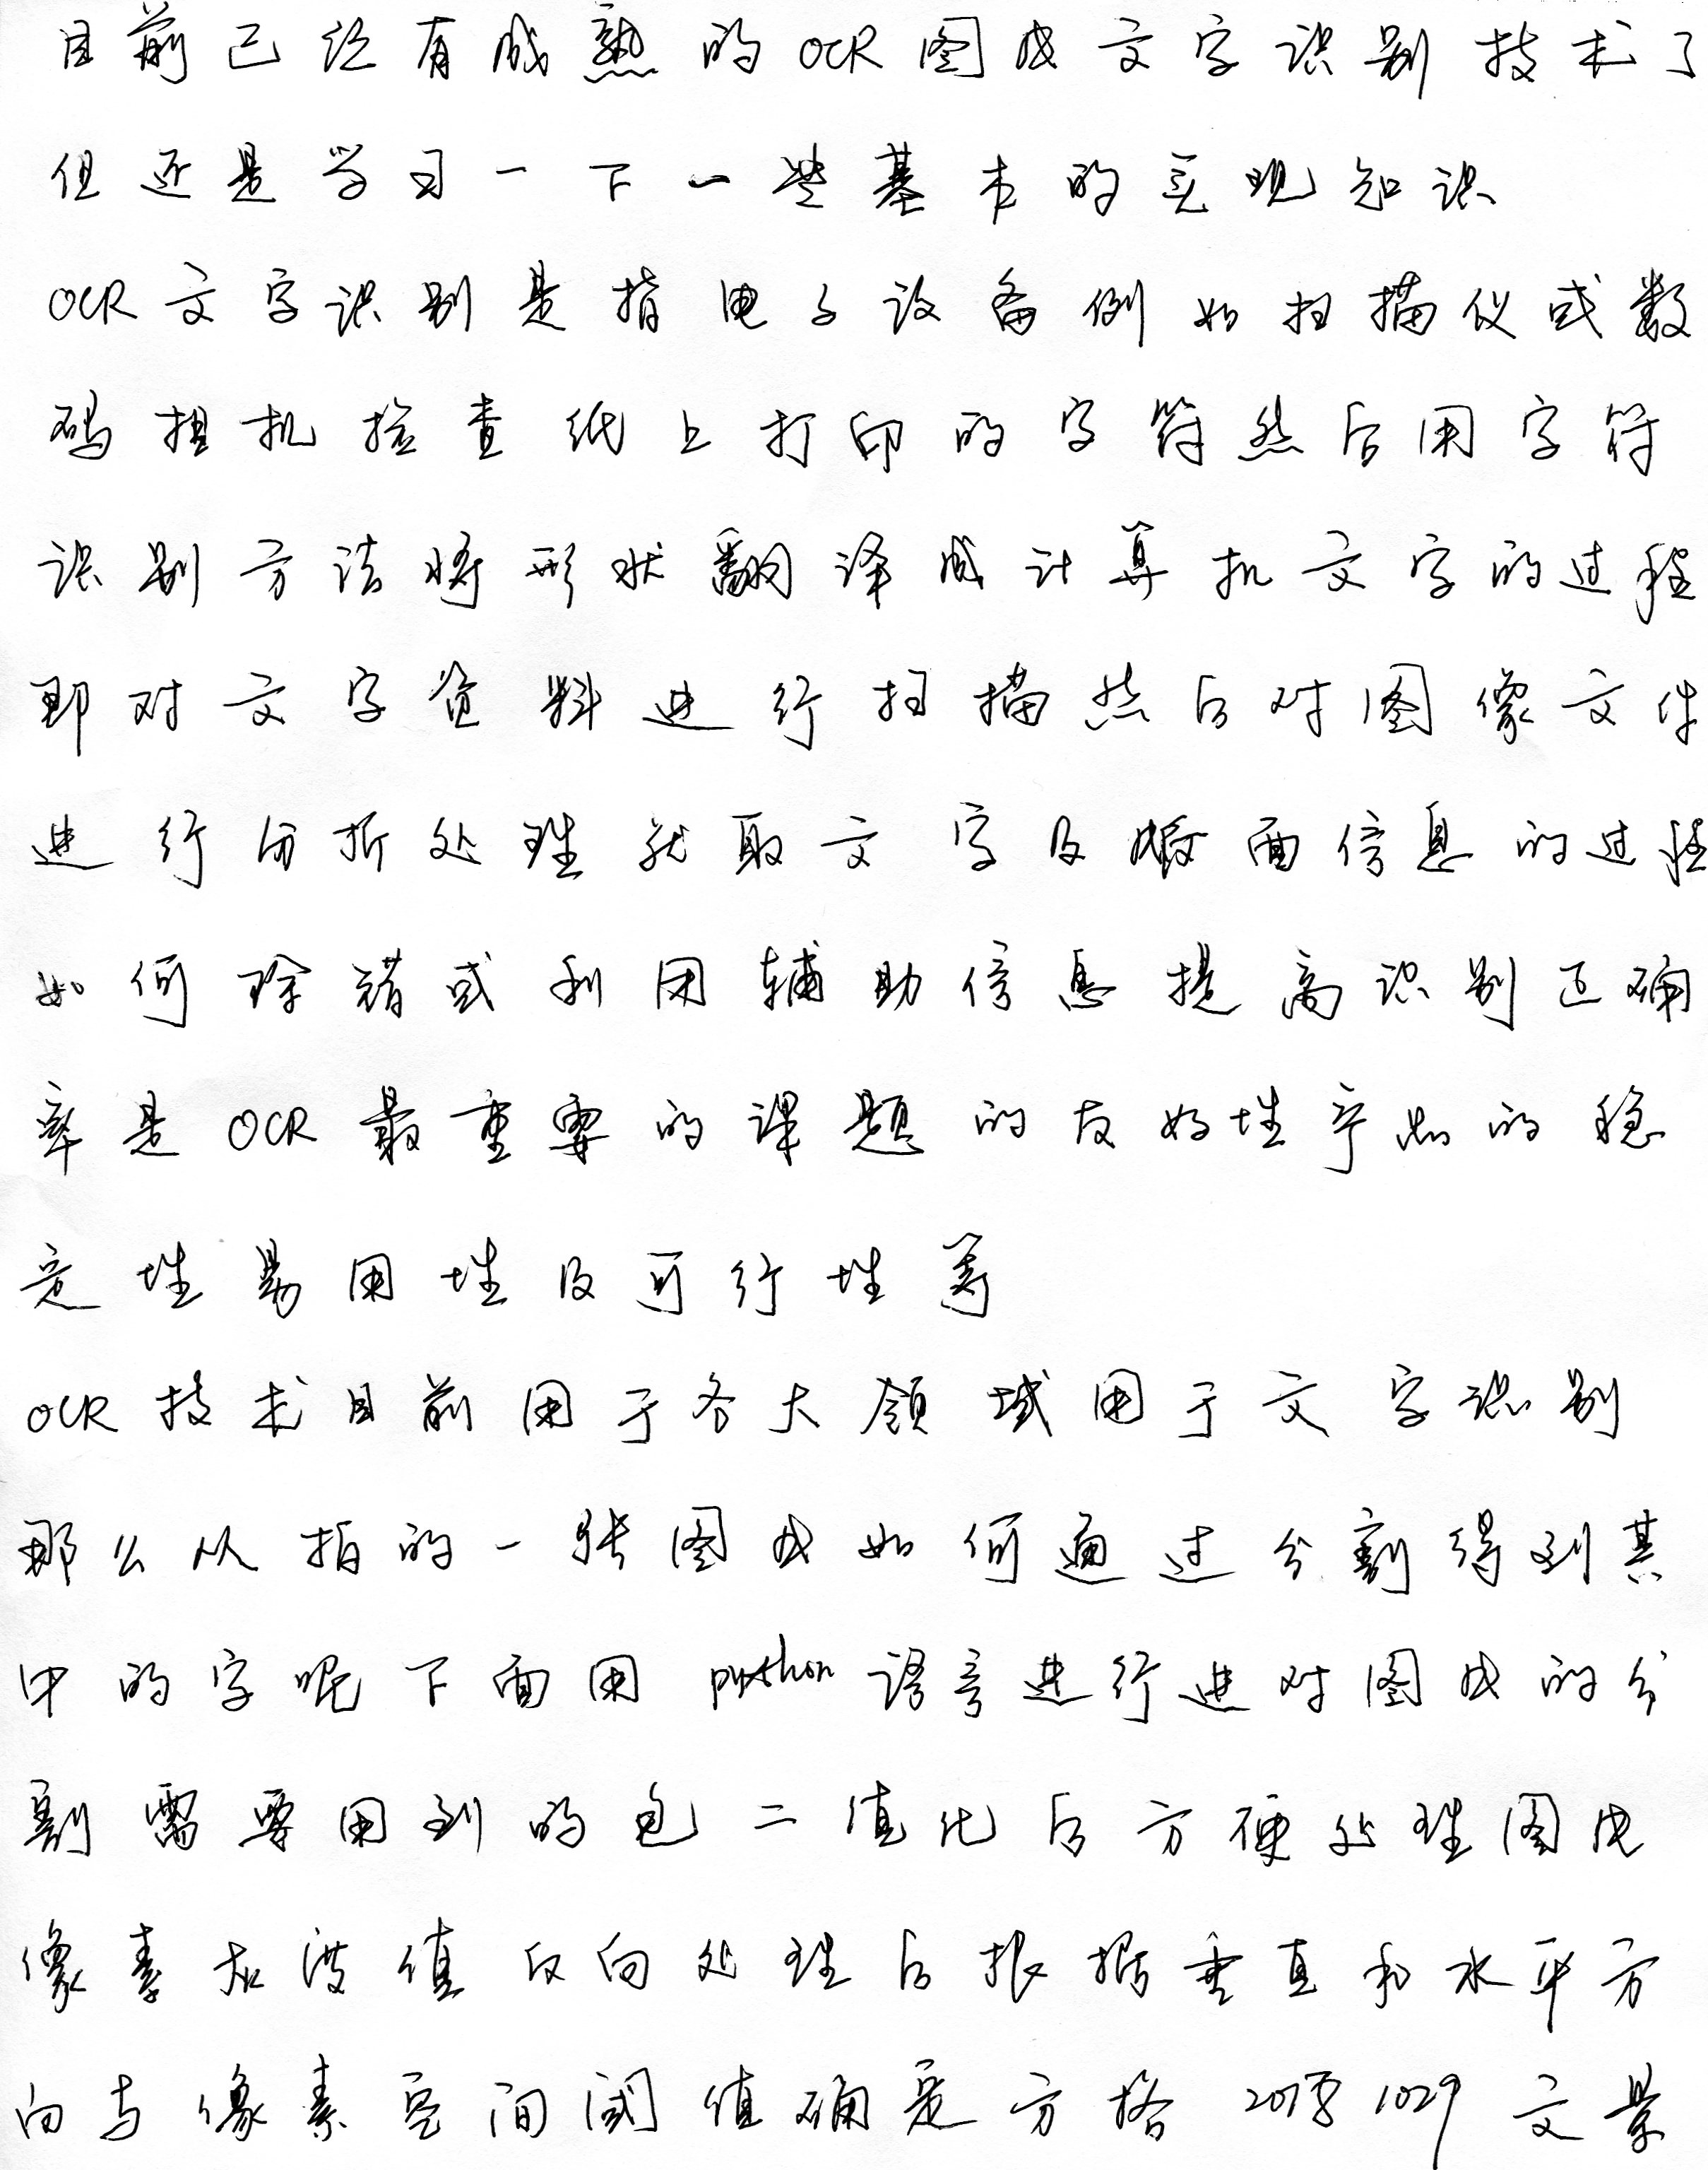 目前已经有成熟的OCR图成文字识别技术了
但还是学习一下一些基本的实现知识
OCR文字识别是指电子设备例如扫描仪或数
码相机检查纸上打印的字符然后用字符
识别方法将形状翻译成计算机文字的过程
即对文字资料进行扫描然后对图像文件
进行分析处理获取文字及版面信息的过程
如何除错或利用辅助信息提高识别正确
率是OCR最重要的课题的友好性产品的稳
定性易用性及可行性等
OCR技术目前用于各大领域用于文字识别
那么从拍的一张图成如何通过分割得到其
中的字呢下面用python语言进行进对图成的分
割需要用到的包二值化后方便处理图成
像素灰度值反向处理后根据垂直和水平方
向与像素空间阈值确定方格 1029 文景